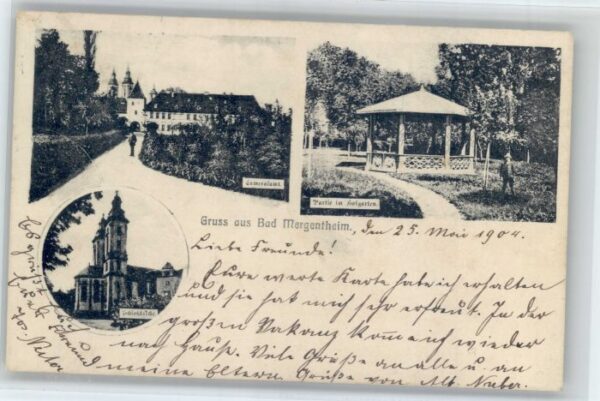 Cameralamt.
Partie im Hofgarten.
Schlosskirche.
Gruss aus Bad Mergentheim, den 25. Mai 1904.
Liebe Freunde!
Eure werte Karte habe ich erhalten
und sie hat mich sehr erfreut. In der
großen Vakanz komme ich wieder
nach Hause. Viele Grüße an alle u. an
meine Eltern. Grüße von Alb. Nuber.
Es grüßt
Euch
Freund